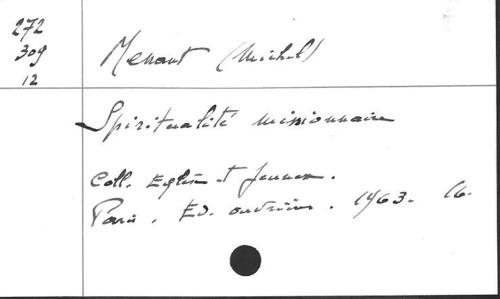 272
309
12
Menant (Michel)
Spiritualité missionnaire
Coll. Eglise et Jeunes.
Paris. Ed. ouvrières. 1963. 16.